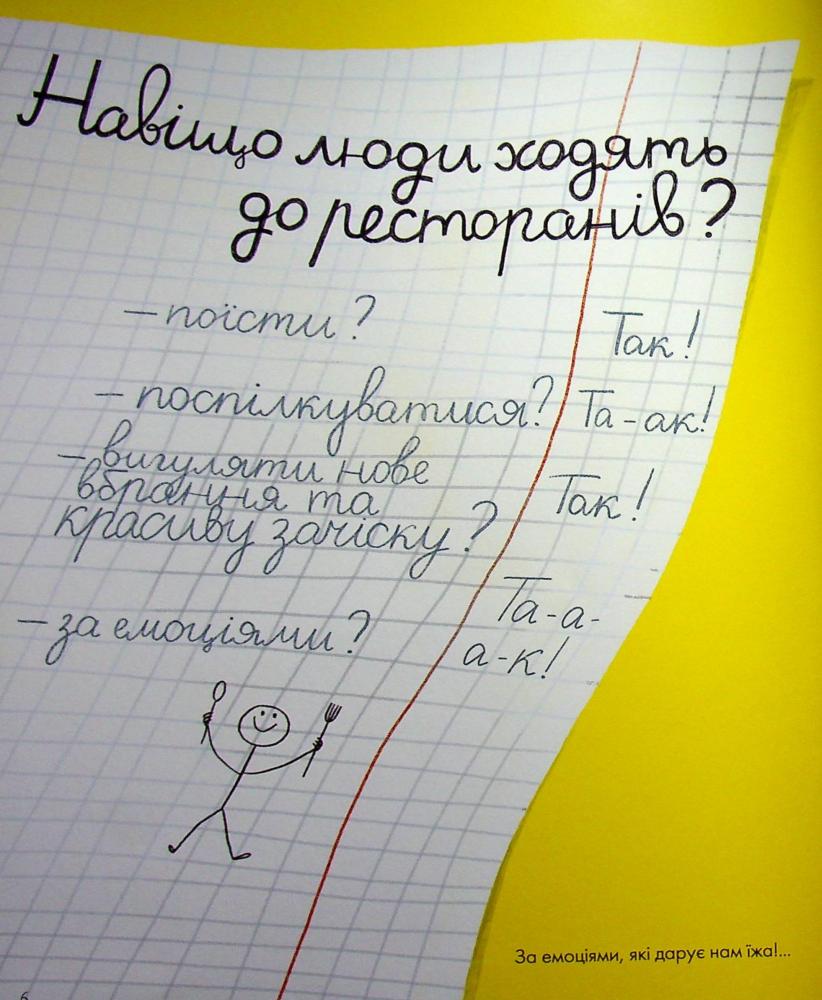 Навіщо люди ходять
до ресторанів?
– поїсти? Так!
– поспілкуватися? Та-ак!
– вигуляти нове
вбрання та
красиву зачіску? Так!
– за емоціями? Та-а-
а-к!
За емоціями, які дарує нам їжа!...
6